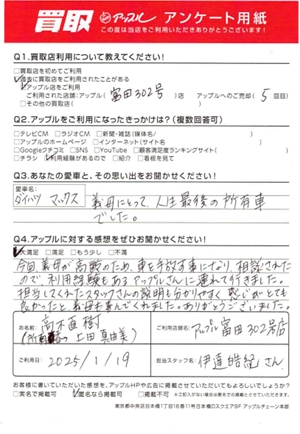 買取 アップル アンケート用紙
この度は当店をご利用いただきありがとうございます!
Q1.買取店利用について教えてください!
□買取店を初めてご利用
□過去に買取店をご利用されたことがある
□アップル店をご利用
ご利用された店舗:アップル(富田302号)店 アップルへのご売却(5回目)
□その他の買取店( )
Q2.アップルをご利用になったきっかけは?(複数回答可)
□テレビCM □ラジオCM □新聞・雑誌(媒体名/ )
□アップルのホームページ □インターネット(サイト名 )
□Googleクチコミ □SNS □YouTube □顧客満足度ランキングサイト( )
□チラシ □利用経験があるので □紹介 □看板を見て
Q3.あなたの愛車と、その思い出をお聞かせください!
愛車名:
ダイハツ マックス 義母にとって人生最後の所有車
でした。
Q4.アップルに対する感想をぜひお聞かせください!
□大満足 □満足 □もう少し □不満
今回義母が高齢のため、車を手放す事になり相談された
ので利用経験もあるアップルさんに連れて行きました。
担当してくれたスタッフさんの説明も分かりやすく感じがとても
良かったと義母も喜んでくれました。ありがとうございました。
お名前 高木直樹
(所有者 上田真由美)
ご利用店舗名: アップル富田302号店
ご利用日 2025/1/19
担当スタッフ名 伊達皓紀さん
お客様に書いていただいた感想を、アップルHPや広告に掲載させていただいてもよろしいでしょうか?
□実名で掲載可 □匿名なら掲載可 □掲載不可
東京都中央区日本橋1丁目16番11号日本橋Dスクエア5F アップルチェーン本部